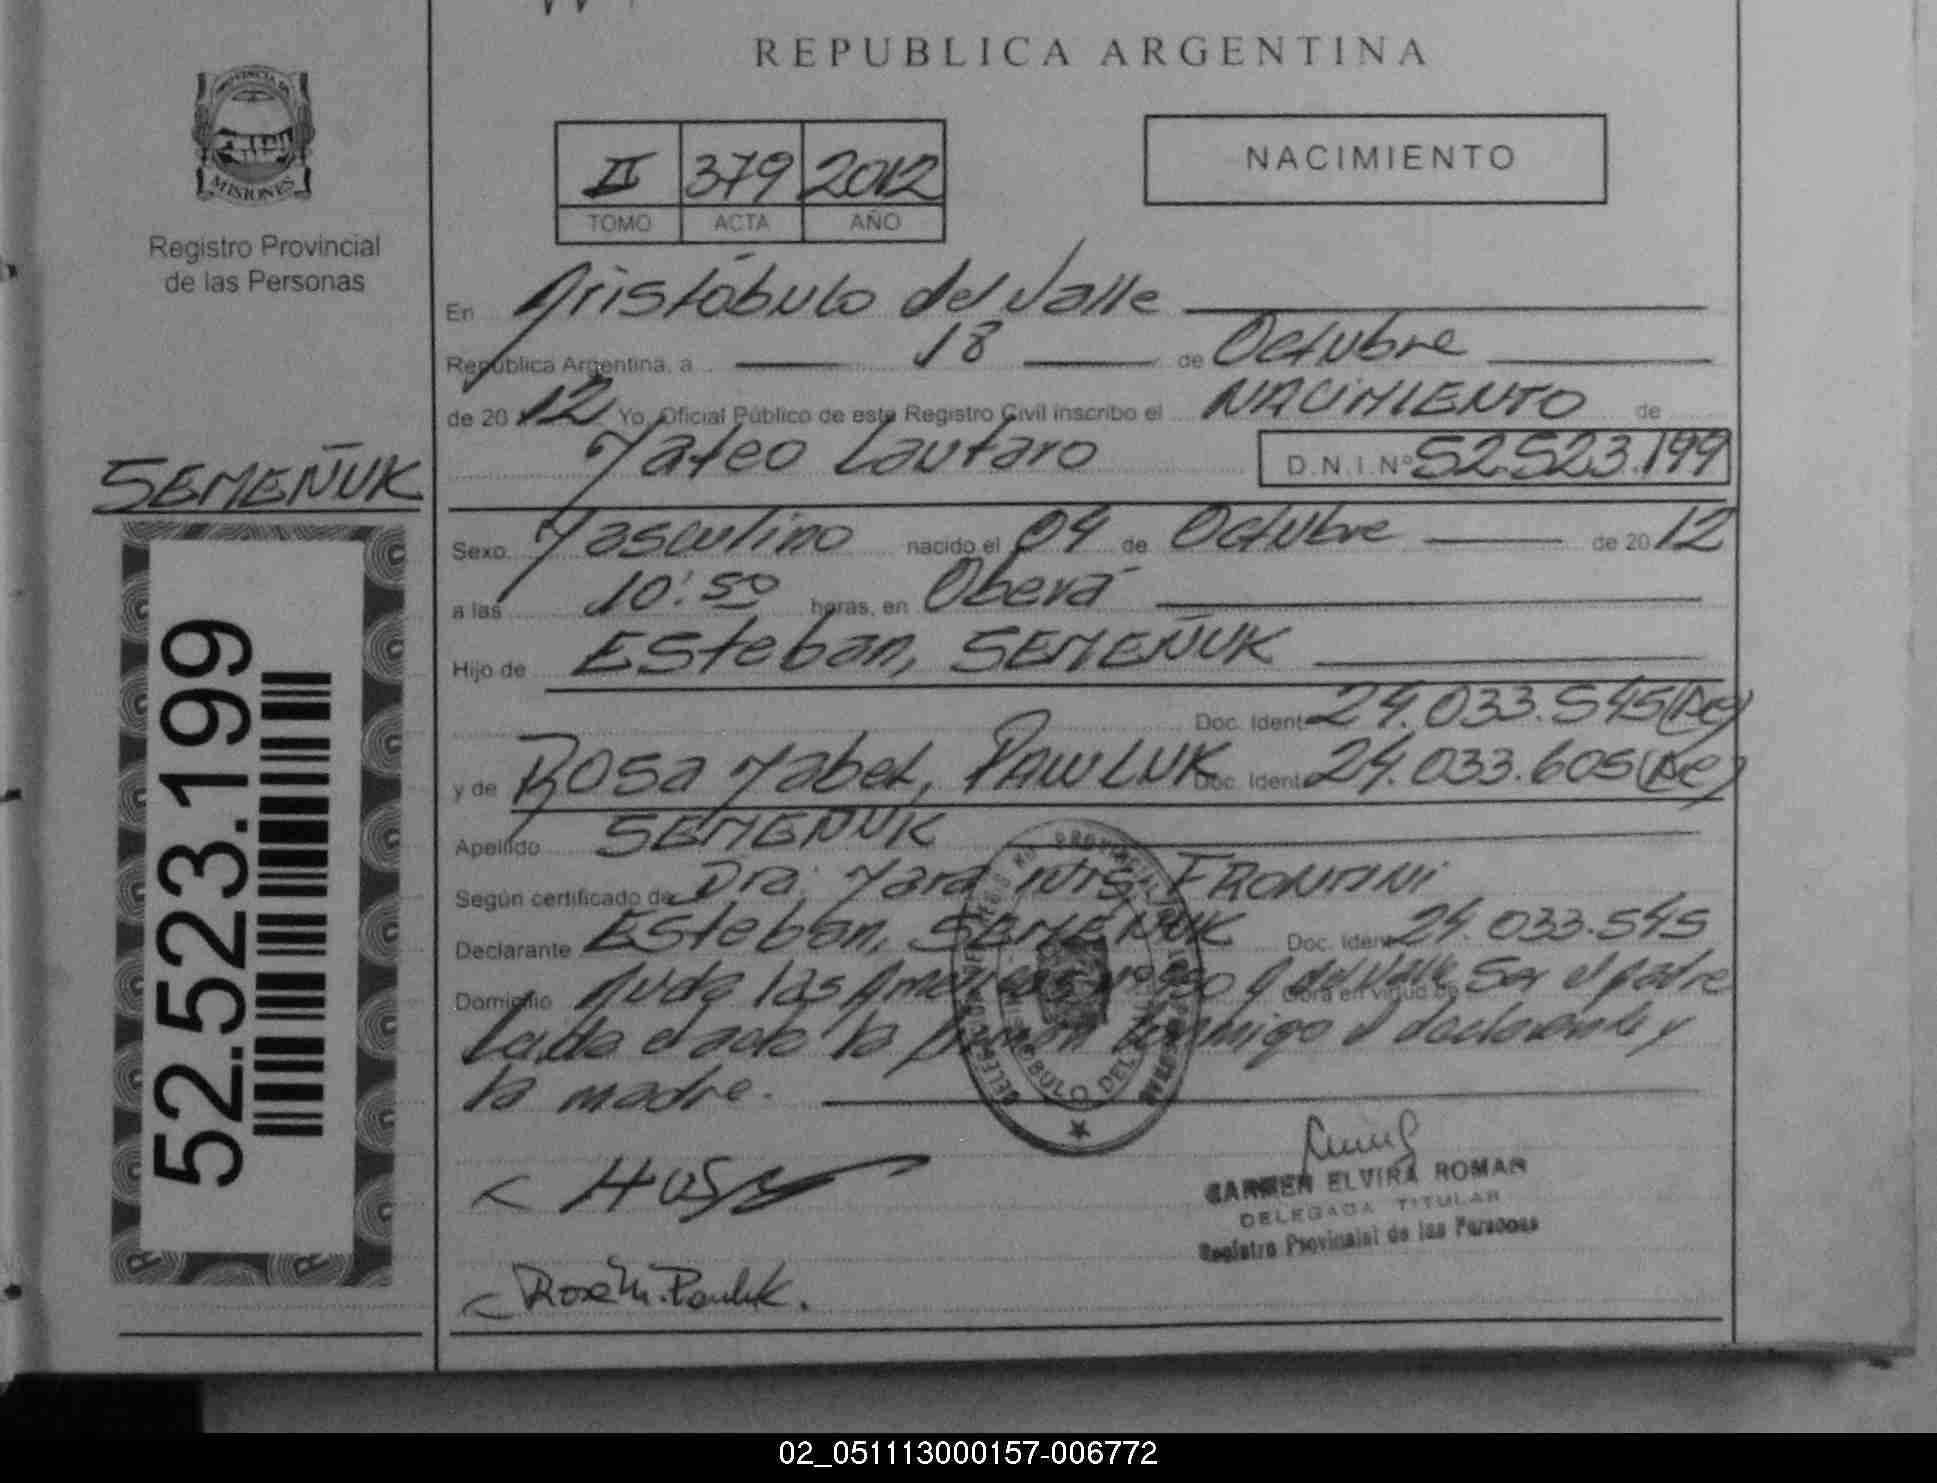 REPUBLICA ARGENTINA
PROVINCIA DE
MISIONES
Registro Provincial
de las Personas
II 379 2012
TOMO ACTA AÑO
NACIMIENTO
En Aristóbulo del Valle
República Argentina, a 18 de Octubre
de 20 12 Yo, Oficial Público de este Registro Civil inscribo el NACIMIENTO de
Mateo Lautaro D.N.I. Nº 52.523.199
SEMEÑUK
52.523.199
Sexo Masculino nacido el 04 de Octubre de 20 12
a las 10:50 horas, en Oberá
Hijo de Esteban, SEMEÑUK
Doc. Ident. 24.033.545 (Ar)
y de Rosa Mabel, PAWLUK Doc. Ident. 24.033.605 (Ar)
Apellido SEMEÑUK
Según certificado de Dra. Mara Inis FRONTINI
Declarante Esteban, SEMEÑUK Doc. Ident. 24.033.545
Domicilio Avda las Americas A del Valle Obra en virtud de Ser el padre
Leida el acta la firman conmigo el declarante y
la madre.
CARMEN ELVIRA ROMAN
DELEGADA TITULAR
Registro Provincial de las Personas
Rosa M. Pawluk.
02_051113000157-006772